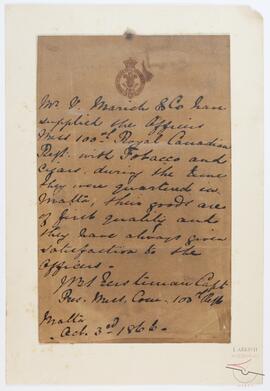 Mr V. Marich & Co have
supplied the Officers
Mess 100th Royal Canadian
Regt. with Tobacco and
Cigars, during the time
they were quartered in
Malta, their goods are
of first quality and
they have always given
satisfaction to the
Officers -
Capt
Pres. Mess Com. 100th Regt
Malta
Oct. 3rd 1866.